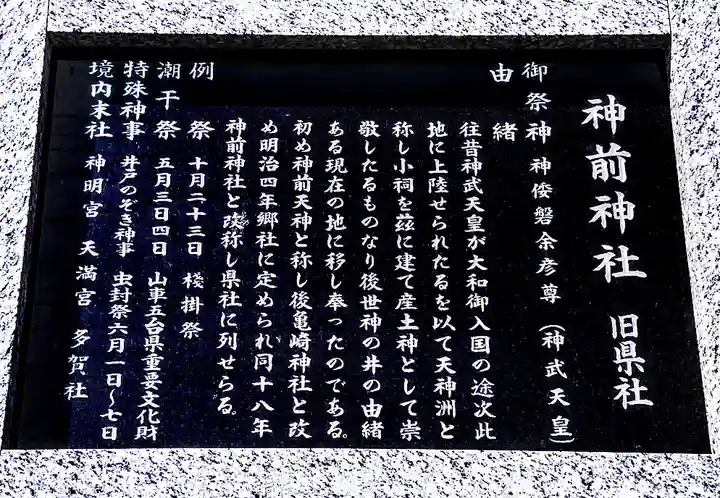 神前神社 旧県社
御祭神 神倭磐余彦尊(神武天皇)
由緒
往昔神武天皇が大和御入国の途次此
地に上陸せられたるを以て天神洲と
称し小祠を玆に建て産土神として崇
敬したるものなり後世神の井の由緒
ある現在の地に移し奉ったのである。
初め神前天神と称し後亀崎神社と改
め明治四年郷社に定められ同十八年
神前神社と改称し県社に列せらる。
例祭 十月二十三日 棧掛祭
潮干祭 五月三日四日 山車五台県重要文化財
特殊神事 井戸のぞき神事 虫封祭六月一日~七日
境内末社 神明宮 天満宮 多賀社